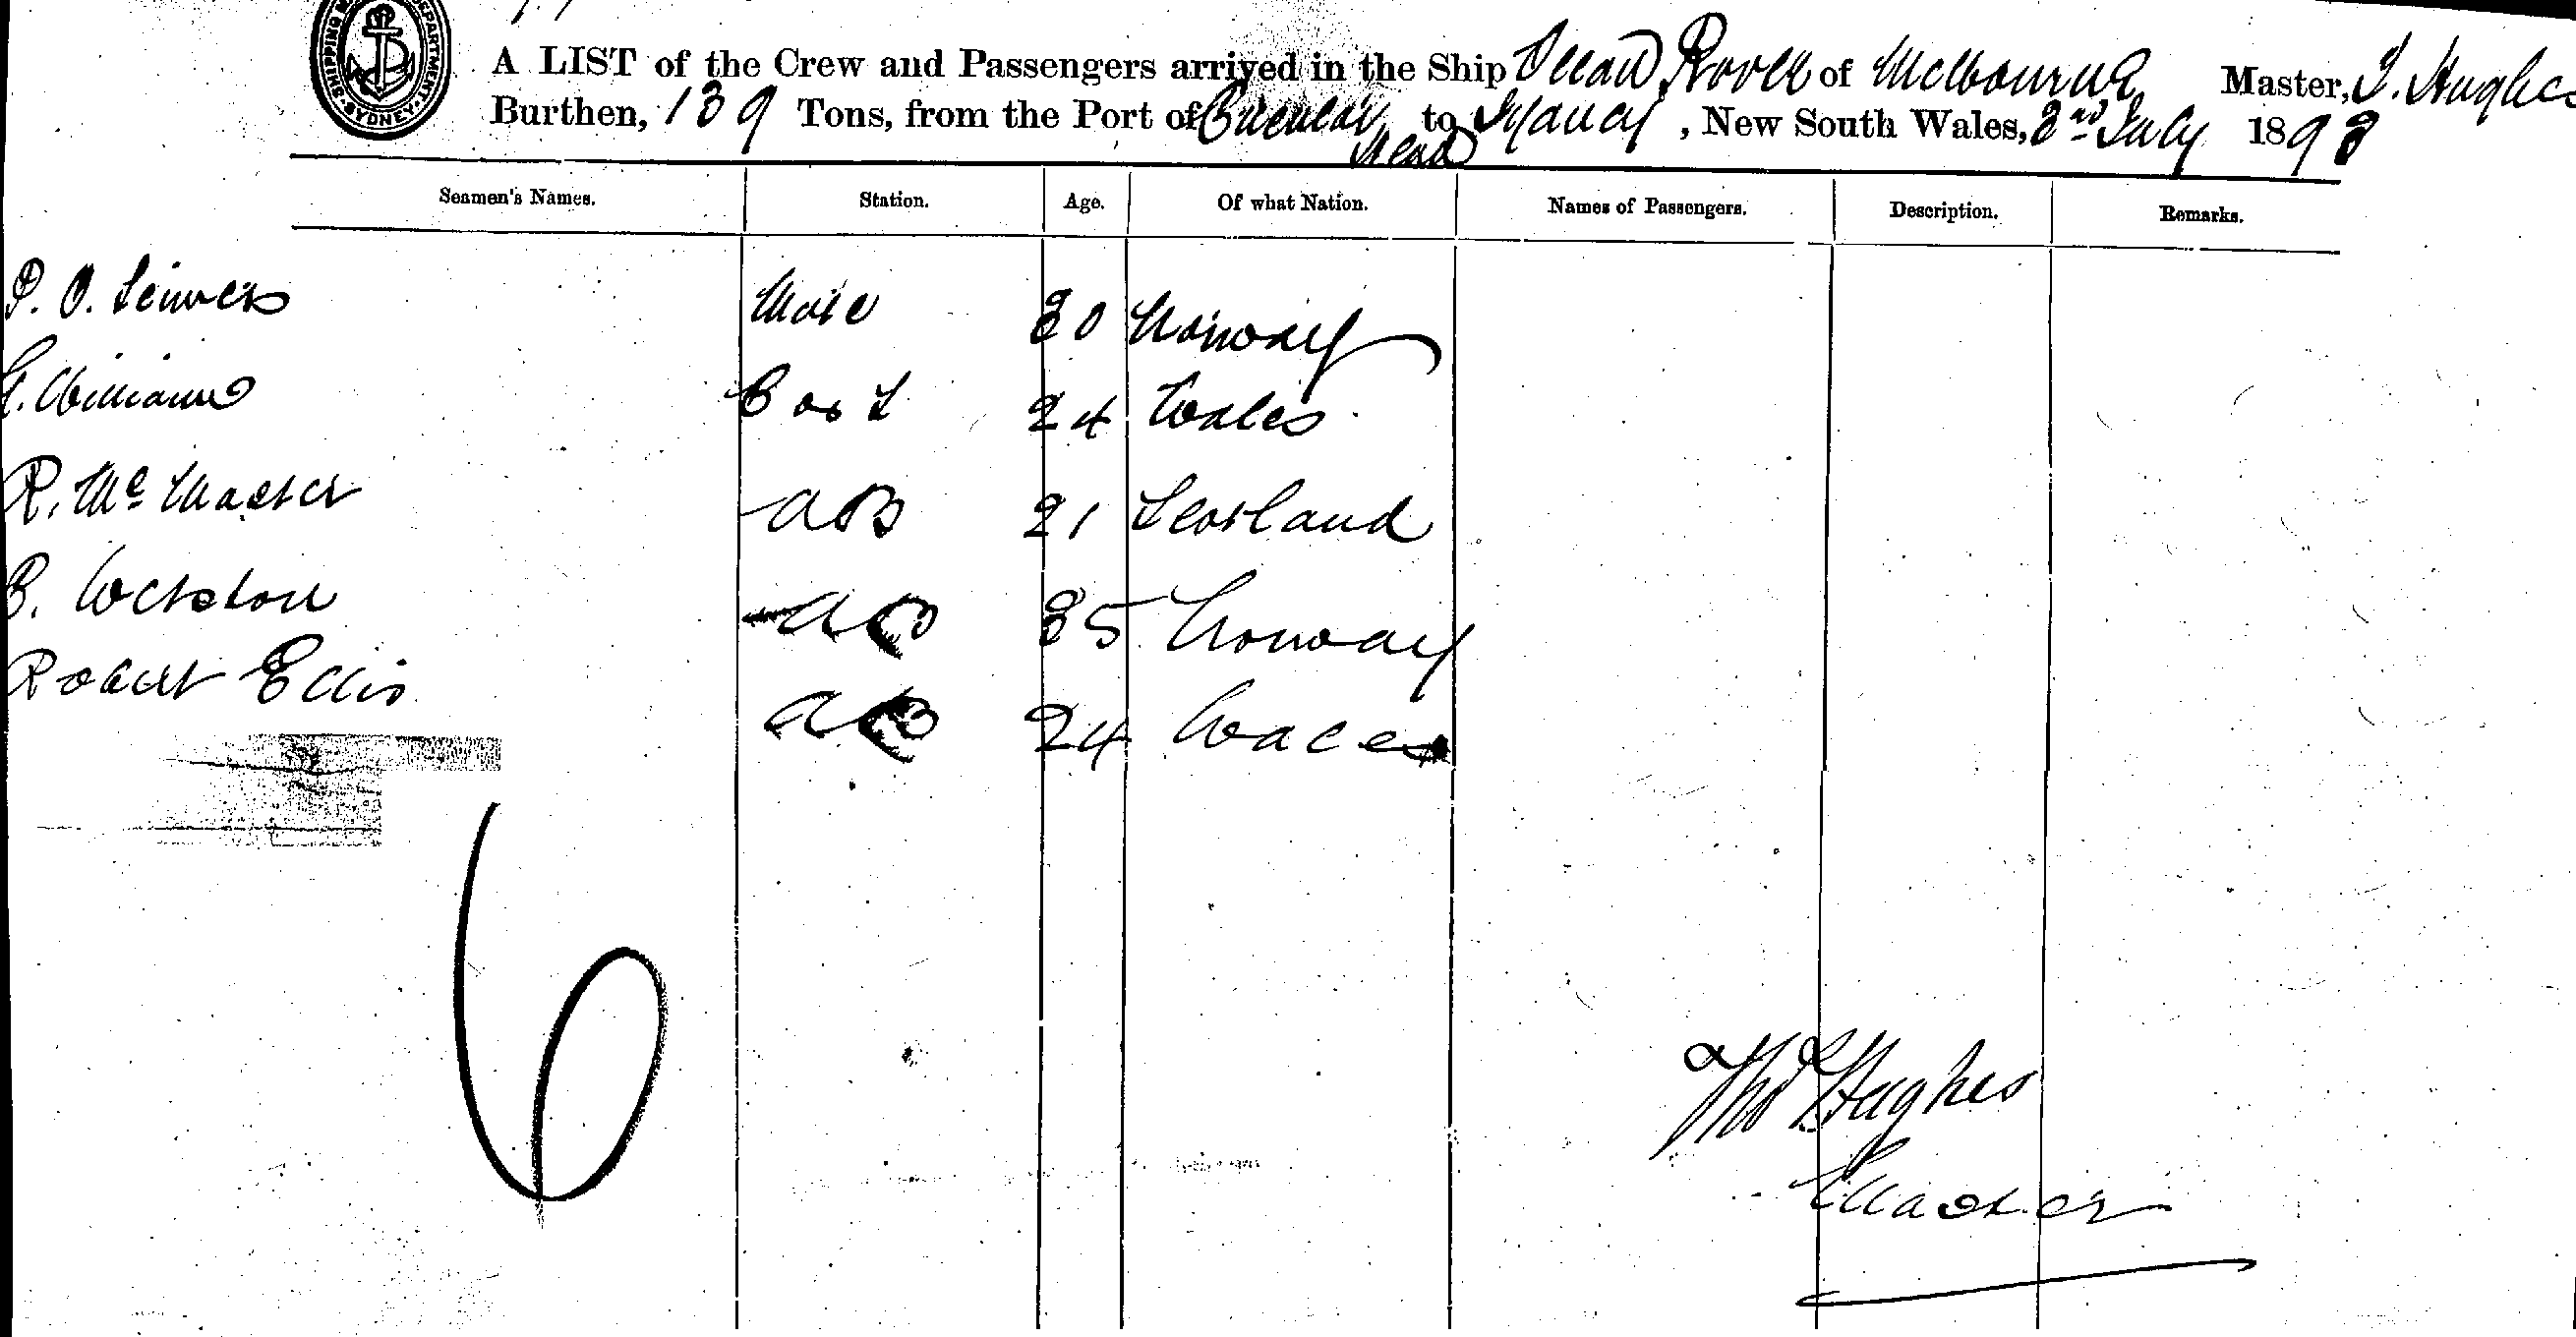 SHIPPING MASTER'S DEPARTMENT SYDNEY
A LIST of the Crew and Passengers arrived in the Ship Ocean Rover of Melbourne Master, T. Hughes
Burthen, 139 Tons, from the Port of Circular Head to Sydney, New South Wales, 2nd July 1898
Seamen's Names. Station. Age. Of what Nation. Names of Passengers. Description. Remarks.
P. O. Mate 30 Norway
Williams 24 Wales
R. Mc Master AB 21 Scotland
AB 35 Norway
Robert Ellis AB 24 Wales
6
Thos Hughes
Master